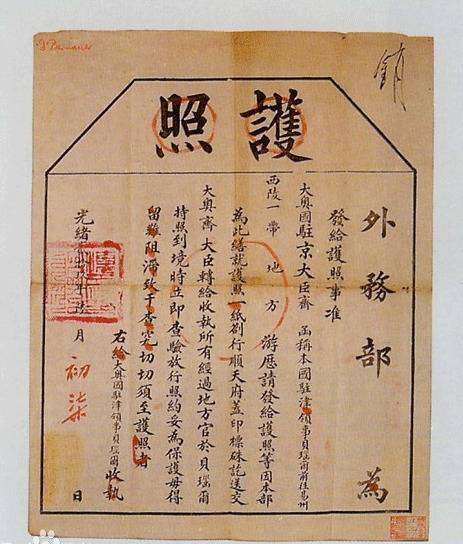 護照
外務部為
發給護照事准
大奧國駐京大臣齊 函稱本國駐津領事貝瑙爾前往易州
西陵一帶地方 游歷請發給護照等因本部
為此繕就護照一紙劄行順天府蓋印標硃訖送交
大奧齊大臣轉給收執所有經過地方官於貝瑙爾
持照到境時立即查驗放行照約妥為保護毋得
留難阻滯致干查究切切須至護照者
右給大奧國駐津領事貝瑙爾收執
光緒 年 月初柒日
銷